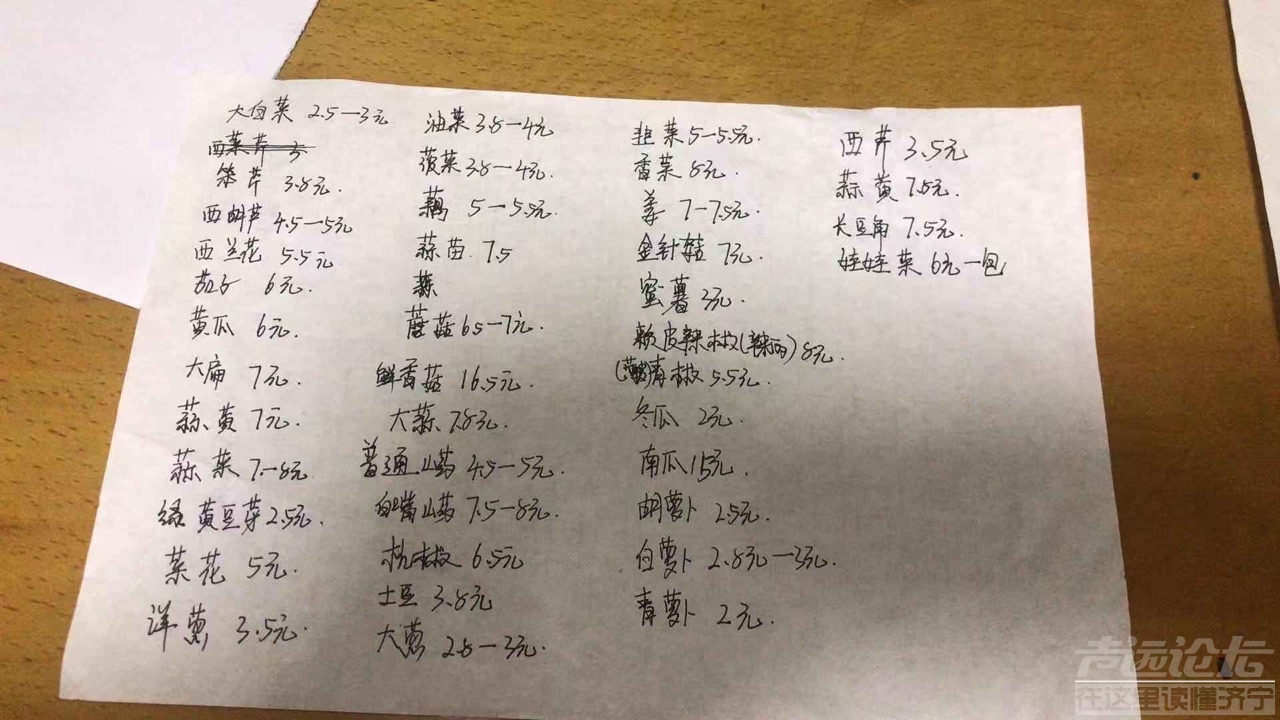 大白菜 2.5—3元
西芹 5
笨芹 3.8元.
西葫芦 4.5—5元
西兰花 5.5元
茄子 6元.
黄瓜 6元.
大扁 7元.
蒜黄 7元.
蒜菜 7.—8元
绿黄豆芽 2.5元.
菜花 5元.
洋葱 3.5元.
油菜 3.8—4元
菠菜 3.8—4元.
藕 5—5.5元.
蒜苗 7.5
蒜
蘑菇 6.5—7元.
鲜香菇 16.5元.
大蒜 7.8元.
普通山药 4.5—5元.
白嘴山药 7.5—8元.
杭椒 6.5元
土豆 3.8元
大葱 2.8—3元.
韭菜 5—5.5元.
香菜 8元.
姜 7—7.5元.
金针菇 7元.
蜜薯 3元.
软皮辣椒(辣的) 8元.
青椒 5.5元.
冬瓜 2元.
南瓜 1.5元.
胡萝卜 2.5元.
白萝卜 2.8元—3元.
青萝卜 2元.
西芹 3.5元
蒜黄 7.5元.
长豆角 7.5元.
娃娃菜 6元一包
声远论坛
在这里读懂济宁